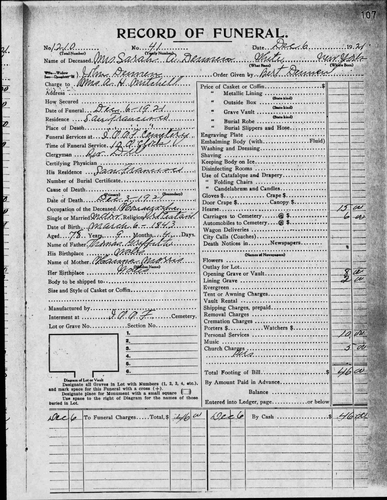 107
RECORD OF FUNERAL.
No. 1210 No. 41 Date, Dec 6 1921
(Total Number) (Yearly Number)
Name of Deceased, Mrs Sarah A. Denmen White New York
(What Race) (Where Born)
Wife—Widow
Charge to Mrs A. H. Mitchell
Order Given by Bert Denmen
Address
How Secured
Date of Funeral Dec 6-1921
Residence San Francisco
Place of Death
Funeral Services at I.O.O.F. Cemetery
Time of Funeral Service
Clergyman
Certifying Physician
His Residence San Francisco
Number of Burial Certificate
Cause of Death
Date of Death Dec 3-1921
Occupation of the Deceased Housewife
Single or Married Widow Religion
Date of Birth March 6-1843
Aged 78 Years, 8 Months, Days.
Name of Father Thomas Griffiths
His Birthplace Wales
Name of Mother Morris
(Maiden Name)
Her Birthplace Wales
Body to be shipped to
Size and Style of Casket or Coffin
Manufactured by
Interment at I.O.O.F. Cemetery.
Lot or Grave No. Section No.
Diagram of Lot or Vault
1.
2.
3.
4.
5.
6.
Designate all Graves in Lot with Numbers (1, 2, 3, 4, etc.),
and mark graves for this Funeral with a cross (+).
Designate place for Monument with a small square
Use space to the right of Diagram for the names of those
buried in Lot.
Price of Casket or Coffin
" Metallic Lining
" Outside Box
" Grave Vault
(Burial)
" Burial Slippers and Hose
Engraving Plate
Embalming Body (with Fluid)
Washing and Dressing
Shaving
Keeping Body on Ice
Disinfecting Rooms
Use of Catafalque and Drapery
" Folding Chairs
" Candelabrum and Candles
Gloves Crape
Door Crape Candy
Hearse 15 00
Carriages to Cemetery @ $ 6 00
Automobiles to Cemetery @ $
Wagon Deliveries
City Calls (Coach)
Death Notices in Newspapers
(Names of Newspapers)
Flowers
Outlay for Lot
Opening Grave or Vault 8 00
Lining Grave 2 00
Evergreen
Tent or Awning Charges
Vault Rental
Shipping Charges, prepaid
Removal Charges
Cremation Charges
Porters @ $ Watchers $
Personal Services 10 00
Music
Church Charges 5 00
Total Footing of Bill $ 46 00
By Amount Paid in Advance
Balance
Entered into Ledger, page or below
Dec 6 To Funeral Charges Total $ 46 00 Dec 6 By Cash 46 00